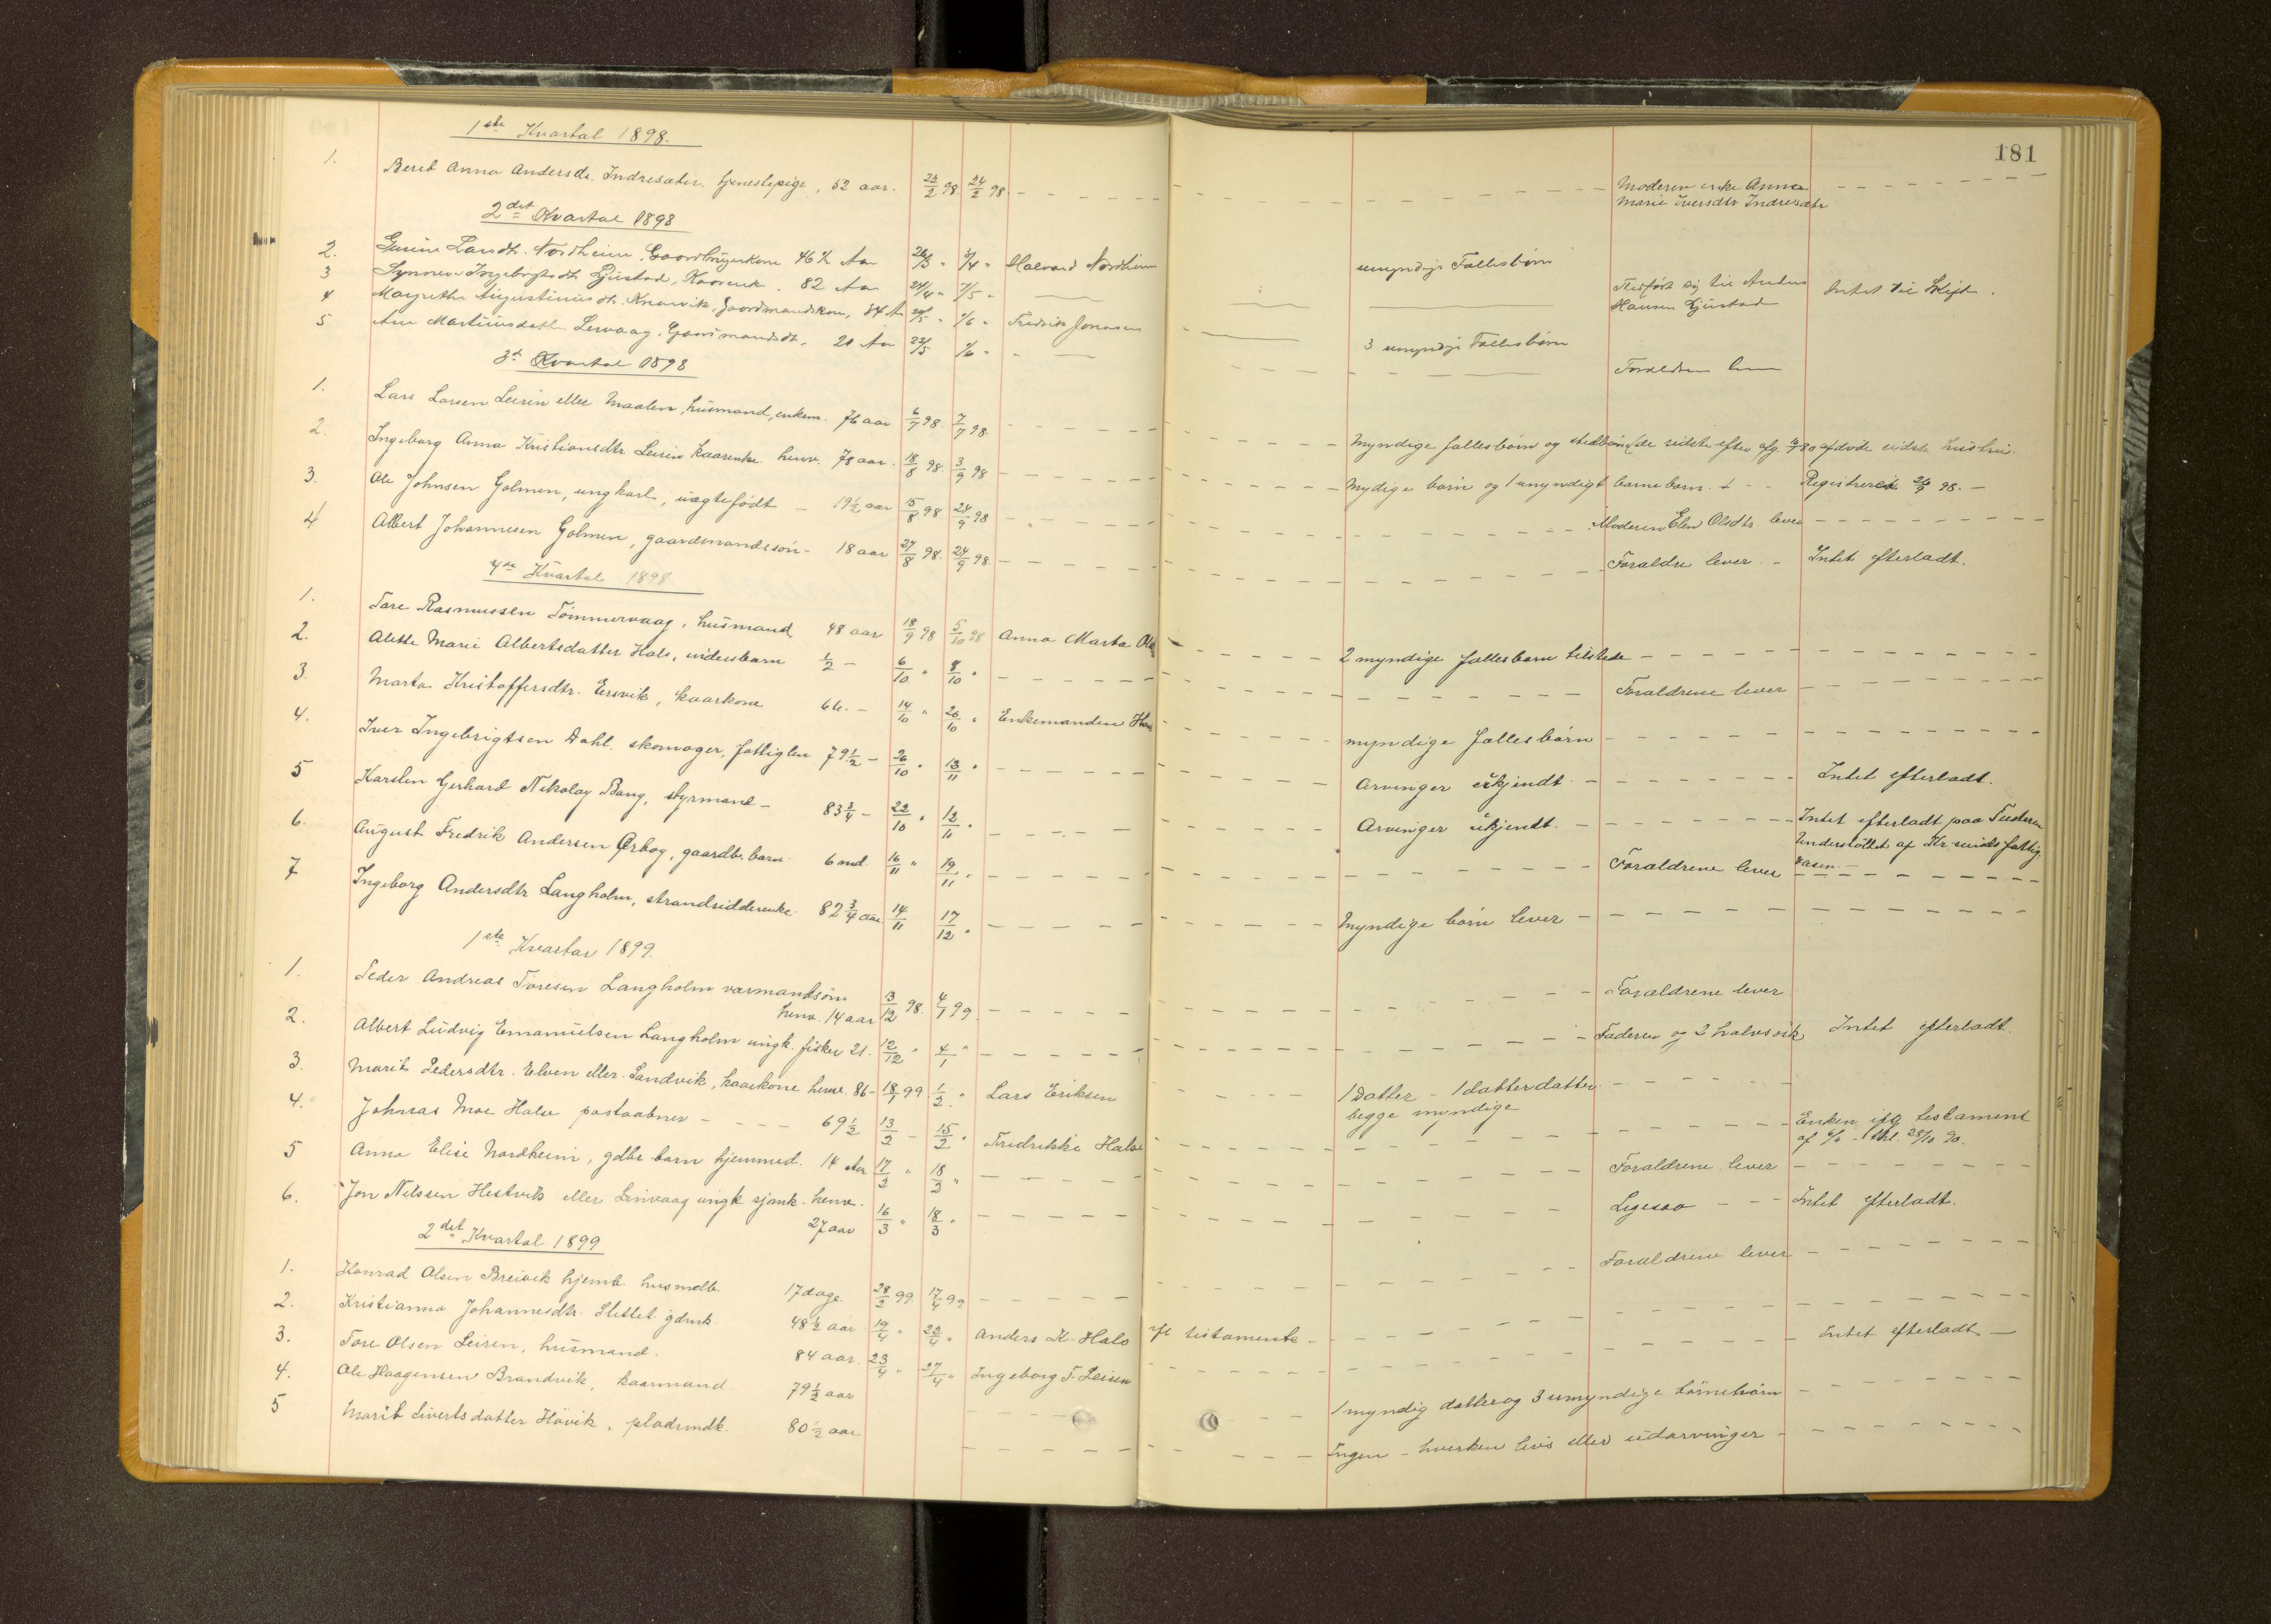 181
1ste Kvartal 1898.
1. Beret Anna Andersdr. Indresæter, tjenestepige, 52 aar. 23/2 98 24/2 98 - - - - Moderen enke Anna
Marie Iversdtr Indresæter
2det Kvartal 1898
2. Larsdtr. Nordheim, Gaardbrugerkone 46 1/2 Aar 26/3 " 3/4 " Halvard Nordheim umyndige Fællesbørn
3 Synnøve Ingebrigtsdtr. 82 Aar 24/4 " 7/5 " til Anders Intet til Skifte.
Hansen
4 Margrethe Augustinusdtr. Knarvik, Gaardmandskone, 34 Aar 1/6 " Fredrik Jonasen 3 umyndige Fællesbørn
5 Ane Martinusdatter Lervaag. Gaardmandsdtr. 21 Aar 22/5 1/6 " Forældrene
3die Kvartal 1898
1. Lars Larsen Leiren eller Maalen, husmand, enkem. 76 aar 6/7 98. 7/7 98. - - - - Myndige fællesbørn og stedbørn (de sidste efter afg. afdøde sidste hustru.
2. Ingeborg Anna Kristiansdtr Leiren kaarenke henv. 78 aar. 18/8 98. 3/9 98 - - - - Mydige børn og 1 umyndigt barnebarn - - Registreret 26/9 98. -
3. Ole Johnsen Golmen, ungkarl, uægtefødt - 19 1/2 aar 15/8 98 24/9 98 - - - - Moderen Elen Olsdtr. lever - - - -
4 Albert Johannesen Golmen, gaardmandssøn - 18 aar 27/8 98. 24/9 98. - - - - Forældre lever. - Intet efterladt.
4de Kvartal 1898
1. Tore Rasmussen Tømmervaag, husmand 48 aar 18/9 98 5/10 98 Anna Marta - - - - 2 myndige fællesbarn tilstede - - - -
2. Alette Marie Albertsdatter Hals, inderstbarn 1/2 - 6/10 " 8/10 " - - - - Forældrene lever - - - -
3. Marta Kristoffersdtr. Ersvik, kaarkone 66. - 14/10 " 26/10 " Enkemanden Hans - - - - myndige fællesbørn - - - -
4. Iver Ingebrigtsen Dahl. skomager, fattiglem 79 1/2 - 26/10 " 13/11 " - - - - Arvinger ukjendt. - - - - Intet efterladt.
5 Karsten Gerhard Nikolay Bang, styrmand - 83 3/4 - 22/10 " 12/11 " - - - - Arvinger ukjendt. - - - - Intet efterladt paa Tusteren
Understøttet af Kr.sunds fattig-
væsen. -
6. August Fredrik Andersen Ørbog, gaardbr. barn 6 md 16/11 " 19/11 " - - - - Forældrene lever - - - -
7 Ingeborg Andersdtr Langholm, strandsidderenke. 82 3/4 aar 14/11 17/12 " - - - - Myndige børn lever - - - -
1ste Kvartal 1899.
1. Peder Andreas Toresen Langholm
henv. 14 aar 13/12 98. 4/1 99 - - - - Forældrene lever.
2. Albert Ludvig Emanuelsen Langholm ungk. fisker 21. 12/12 " 4/1 " - - - - Faderen og 2 halvsøsk. Intet efterladt.
3. Marit Pedersdtr. Elven eller Sandvik, kaarkone henv. 86 - 18/1 99. 1/2 " Lars Eriksen - - - - 1 datter - 1 datterdatter - - - -
begge myndige
4. Johnas Moe Halse postaabner - - - - 69 1/2 13/2 - 15/2 " Fredrikke Halse - - - - Enken iflg testament
af 6/6 - 28/10 90.
5 Anna Elise Nordheim, gdbr. barn hjemmed. 14 Aar 17/2 " 18/3 " - - - - Forældrene lever - - - -
6. Jon Nilssen Hestvik eller Linvaag ungk sjømk. henv.
27 aar 16/3 " 18/3 " - - - - Ligesaa - - - Intet efterladt.
2det Kvartal 1899
1. Konrad Olsen Breivik hjemb. husmdb. 17 dage 28/2 99 17/4 99 - - - - Forældrene lever - - - -
2. Kristianna Johannesdtr. Slettet gdmk. 48 1/2 aar 19/4 " 22/4 " Anders K. Hals ifl testamente - - - -
3. Tore Olsen Leiren, husmand. 84 aar. 23/4 " 27/4 " Ingeborg T. Leiren - - - - Intet efterladt -
4. Ole Haagensen Brandvik, kaarmand. 79 1/2 aar - - - - 1 myndig datter og 3 umyndige børnebørn - - - -
5 Marit Sivertsdatter Høvik, pladsmdk. 80 1/2 aar - - - - Ingen - hverken livs eller udarvinger - - - -